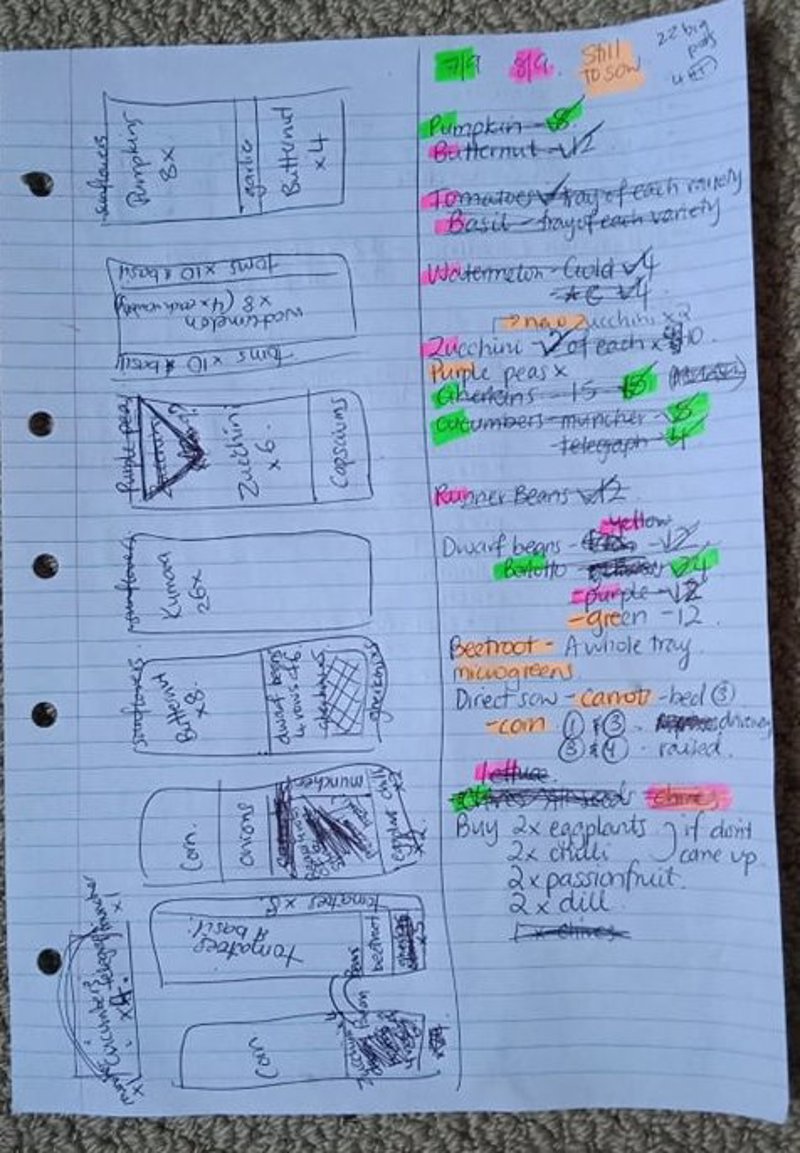 7/9 8/9. Still to sow
22 big pots
Pumpkin - 8
Butternut - 12
Tomatoes - tray of each variety
Basil - tray of each variety
Watermelon - Gold 4
4
→ new zucchini x2
Zucchini - 2 of each x 10.
Purple peas x
Gherkins - 15 8
Cucumbers - muncher - 8
telegraph - 4
Runner Beans 12
yellow
Dwarf beans - 12
Borlotto - 24
- purple - 12
- green - 12
Beetroot - A whole tray
microgreens
Direct sow - carrot - bed ③
- corn ① & ③ -
③ & ④ - raised.
lettuce
chives
Buy 2x eggplants } if don't
2x chilli come up
2x passionfruit.
2x dill
1x chives
sunflowers
Pumpkins
8x
garlic
Butternut
x4
toms x10 & basil
watermelon
x8 (4x each variety)
toms x10 & basil
Purple peas
Zucchini
x6.
Capsciums
sunflowers
Kumara
26x
sunflowers
Butternut
x8.
dwarf beans
4 rows
gherkins
Corn.
onions
muncher
chilli
x2
eggplant
x2
tomatoes x5.
tomatoes
& basil.
beetroot
Corn
Cucumbers
telegraph
x4.
muncher
x1